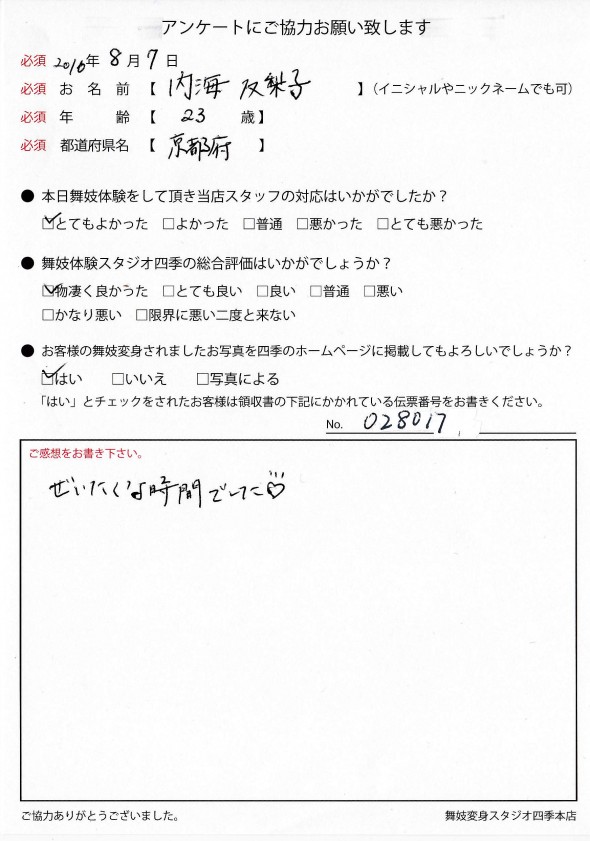 アンケートにご協力お願い致します
必須 2016年 8月 7日
必須 お名前 【 内海 友梨子 】（イニシャルやニックネームでも可）
必須 年齢 【 23 歳】
必須 都道府県名 【 京都府 】
● 本日舞妓体験をして頂き当店スタッフの対応はいかがでしたか？
☑とてもよかった □よかった □普通 □悪かった □とても悪かった
● 舞妓体験スタジオ四季の総合評価はいかがでしょうか？
☑物凄く良かった □とても良い □良い □普通 □悪い
□かなり悪い □限界に悪い二度と来ない
● お客様の舞妓変身されましたお写真を四季のホームページに掲載してもよろしいでしょうか？
☑はい □いいえ □写真による
「はい」とチェックをされたお客様は領収書の下記にかかれている伝票番号をお書きください。
No. 028017
ご感想をお書き下さい。
ぜいたくな時間でした♡
ご協力ありがとうございました。 舞妓変身スタジオ四季本店